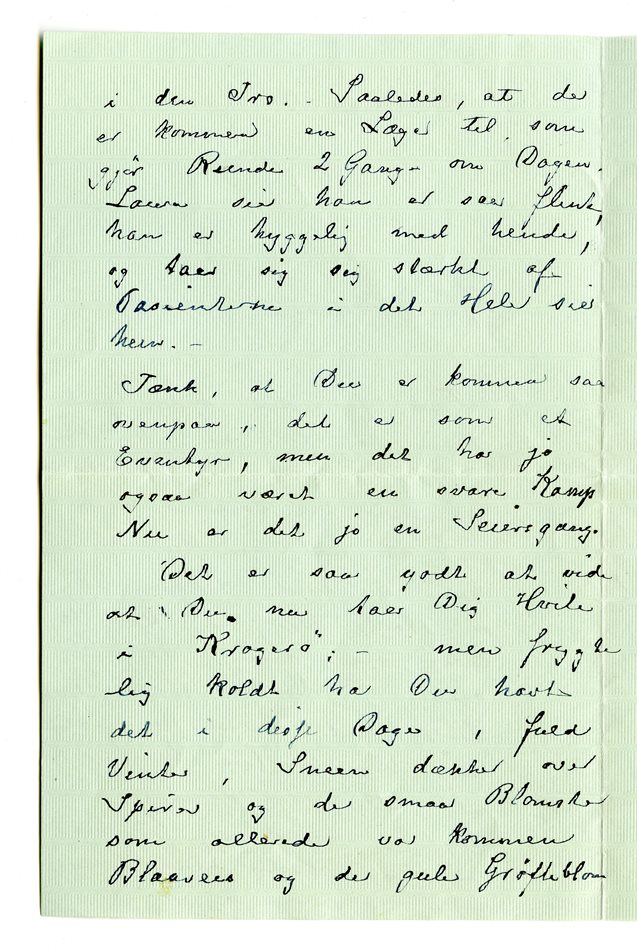 i den Tro. - Saaledes, at de
er kommen en Læge til, som
gjør Runde 2 Gange om Dagen.
Laura sier han er saa flink,
han er hyggelig med hende,
og taer sig sig stærkt af
Pasienterne i det Hele sier
hun. -
Tænk, at Du er kommen saa
ovenpaa, det er som et
Eventyr, men det har jo
ogsaa været en svare Kamp
Nu er det jo en Seiersgang.
Det er saa godt at vide
at Du nu taer Dig Hvile
i Kragerø", - men frygte
lig koldt har Du havt
det i disse Dage, fuld
Vinter, Sneen dækker over
Spirer og de smaa Blomster
som allerede var kommen
Blaaveis og de gule Grøfteblom